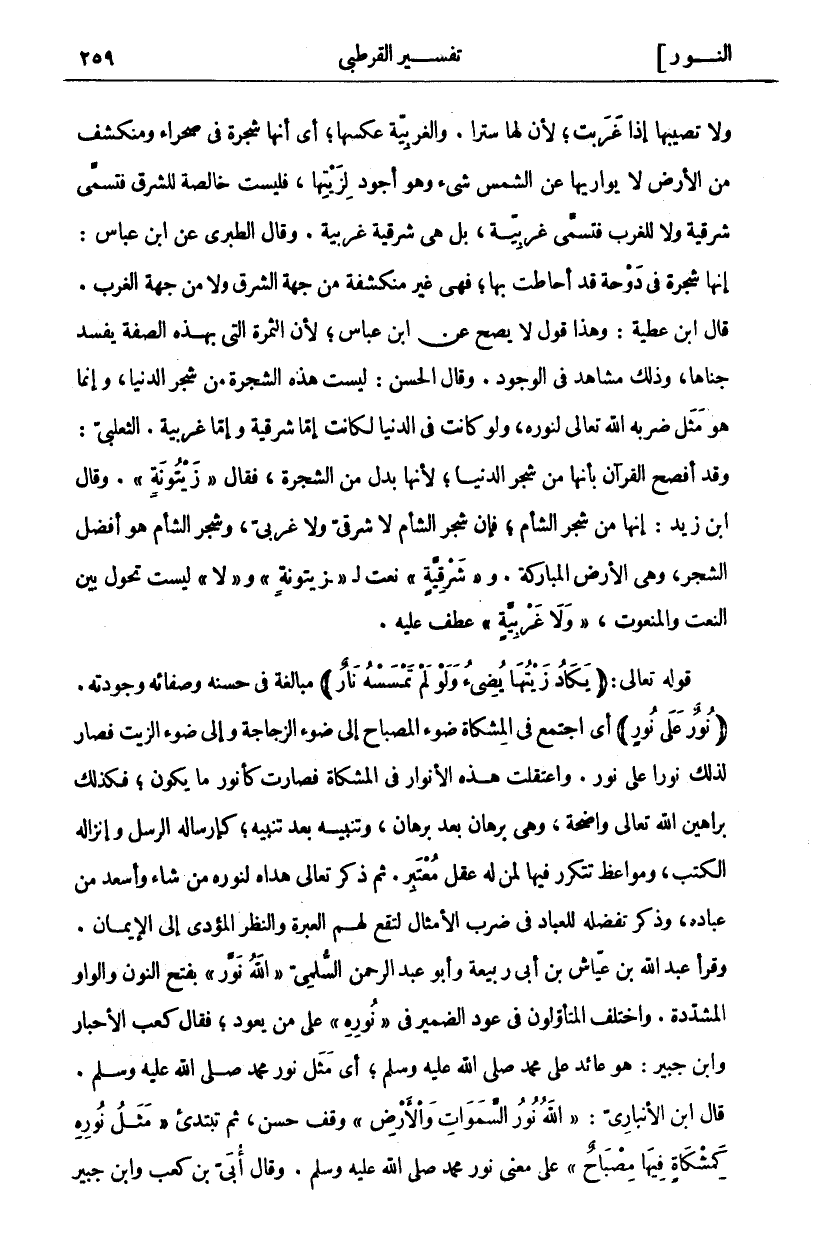 النـــور] تفســـير القرطبي ٢٥٩
ولا تصيبها إذا غَرَبت؛ لأن لها سترا . والغربيّة عكسها؛ أى أنها شجرة فى صحراء ومنكشف
من الأرض لا يواريها عن الشمس شىء وهو أجود لِزَيْتِها ، فليست خالصة للشرق فتسمَّى
شرقية ولا للغرب فتسمَّى غربيّــة ، بل هى شرقية غربية . وقال الطبرى عن ابن عباس :
إنها شجرة فى دَوْحة قد أحاطت بها؛ فهى غير منكشفة من جهة الشرق ولا من جهة الغرب .
قال ابن عطية : وهذا قول لا يصح عن ابن عباس ؛ لأن الثمرة التى بهــذه الصفة يفسد
جناها، وذلك مشاهد فى الوجود . وقال الحسن : ليست هذه الشجرة من شجر الدنيا، وإنما
هو مَثَل ضربه الله تعالى لنوره، ولو كانت فى الدنيا لكانت إمّا شرقية وإمّا غربية . الثعلبىّ :
وقد أفصح القرآن بأنها من شجر الدنيــا ؛ لأنها بدل من الشجرة ، فقال « زَيْتُونَةٍ » . وقال
ابن زيد : إنها من شجر الشأم ؛ فإن شجر الشأم لا شرقىّ ولا غربىّ ، وشجر الشأم هو أفضل
الشجر، وهى الأرض المباركة . و « شَرْقِيَّةٍ » نعت لـ « ـزيتونةٍ » و« لا » ليست تحول بين
النعت والمنعوت ، « وَلَا غَرْبِيَّةٍ » عطف عليه .
قوله تعالى: ﴿ يَكَادُ زَيْتُهَا يُضِىءُ وَلَوْ لَمْ تَمْسَسْهُ نَارٌ ﴾ مبالغة فى حسنه وصفائه وجودته .
﴿ نُورٌ عَلَى نُورٍ ﴾ أى اجتمع فى المِشكاة ضوء المصباح إلى ضوء الزجاجة وإلى ضوء الزيت فصار
لذلك نورا على نور . واعتقلت هــذه الأنوار فى المشكاة فصارت كأنور ما يكون ؛ فكذلك
براهين الله تعالى واضحة ، وهى برهان بعد برهان ، وتنبيــه بعد تنبيه؛ كإرساله الرسل وإنزاله
الكتب، ومواعظ تتكرر فيها لمن له عقل مُعْتَبِر . ثم ذكر تعالى هداه لنوره من شاء وأسعد من
عباده، وذكر تفضله للعباد فى ضرب الأمثال لتقع لهــم العبرة والنظر المؤدى إلى الإيمــان .
وقرأ عبد الله بن عيّاش بن أبى ربيعة وأبو عبد الرحمن السُّلَمِىّ « اللهُ نَوَّر » بفتح النون والواو
المشدّدة . واختلف المتأوّلون فى عود الضمير فى « نُورِهِ » على من يعود ؛ فقال كعب الأحبار
وابن جبير : هو عائد على محمد صلى الله عليه وسلم ؛ أى مَثَل نور محمد صــلى الله عليه وســلم .
قال ابن الأنبارىّ : « اللهُ نُورُ السَّمَوَاتِ وَالْأَرْضِ » وقف حسن ، ثم تبتدئ « مَثَــلُ نُورِهِ
كَمِشْكَاةٍ فِيهَا مِصْبَاحٌ » على معنى نور محمد صلى الله عليه وسلم . وقال أُبَىّ بن كعب وابن جبير